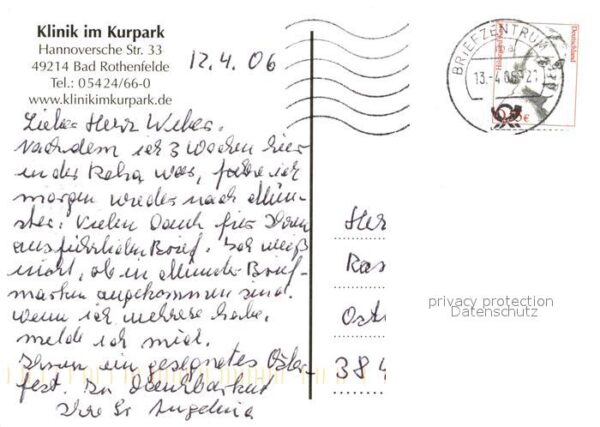 Klinik im Kurpark
Hannoversche Str. 33
49214 Bad Rothenfelde
Tel.: 05424/66-0
www.klinikimkurpark.de
12.4.06
Lieber Herr Weber.
Nachdem ich 3 Wochen hier
in der Reha war, fahre ich
morgen wieder nach Mün-
ster. Vielen Dank für Ihren
ausführlichen Brief. Ich weiß
nicht, ob in Münster Brief-
marken angekommen sind.
Wenn ich mehrere habe,
melde ich mich.
Ihnen ein gesegnetes Oster-
fest. In Dankbarkeit
Ihre Sr Angelina
BRIEFZENTRUM
13.-4.06-21
Deutschland
Her
Ras
Ostr
384
privacy protection
Datenschutz